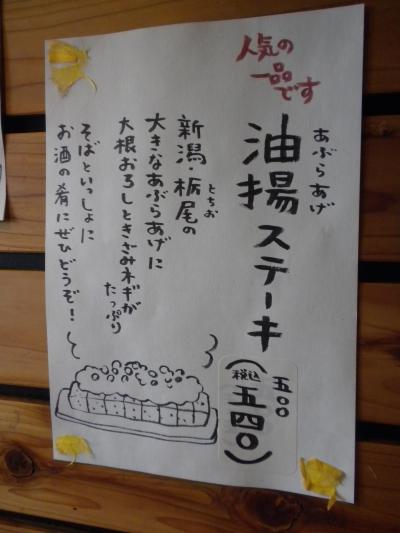 人気の
一品
です
あぶらあげ
油揚ステーキ
五〇〇
(税込
五四〇)
新潟・栃尾の
とちお
大きなあぶらあげに
大根おろしときざみネギが
たっぷり
そばといっしょに
お酒の肴にぜひどうぞ!